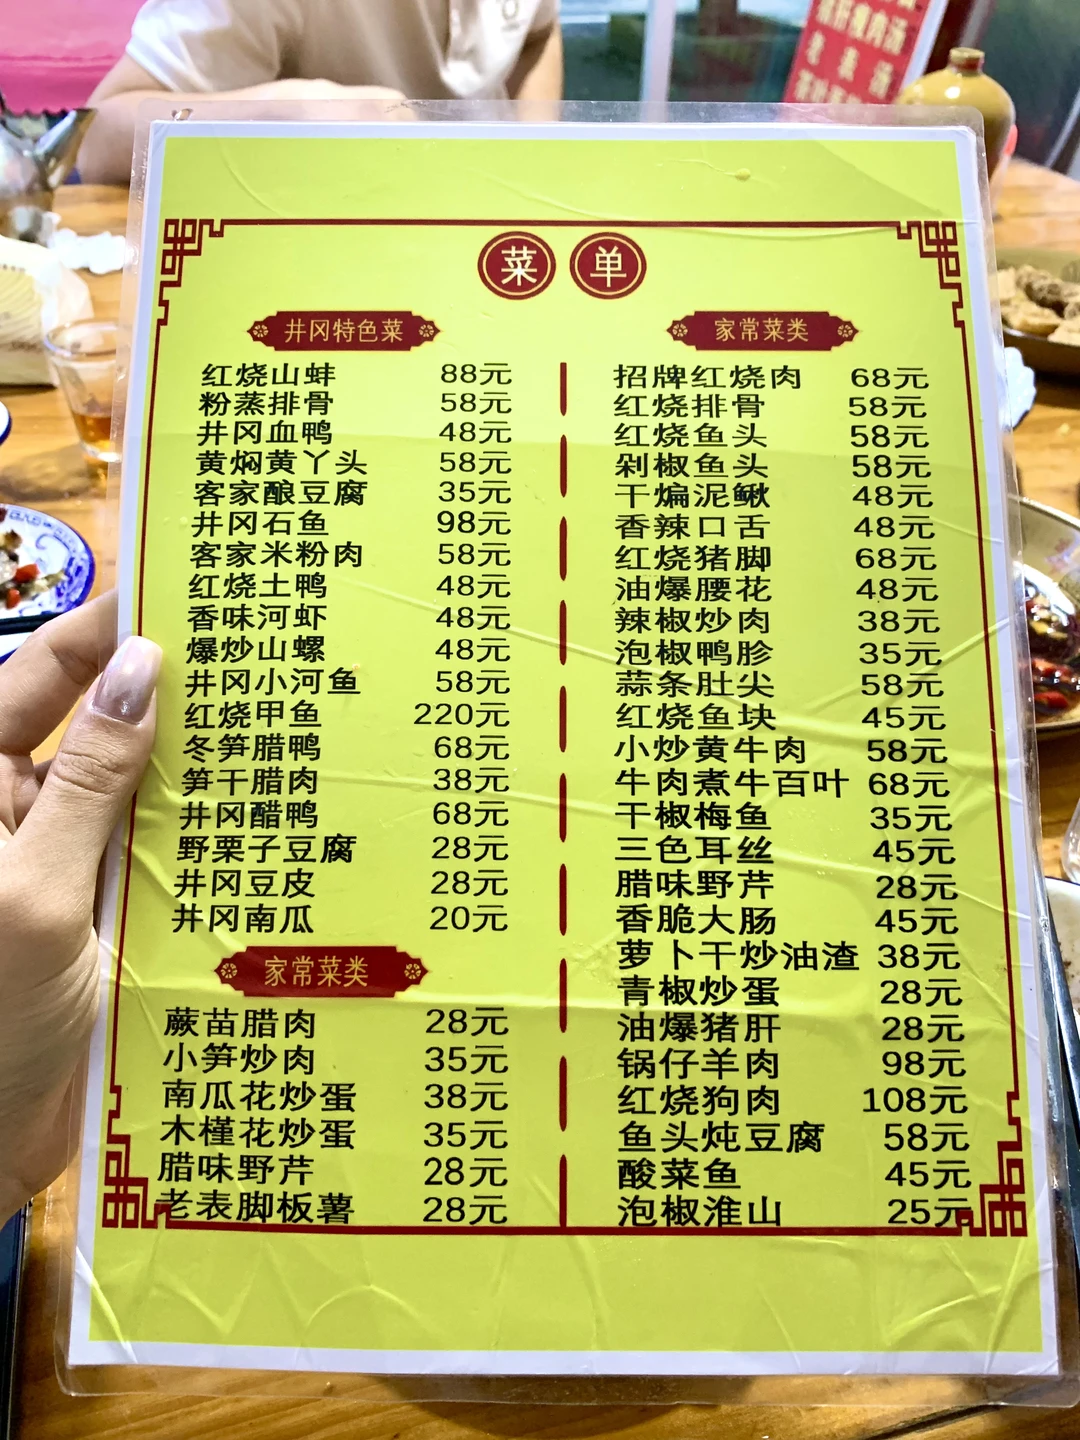 瘦肉汤
老表汤
菜单
井冈特色菜
红烧山蚌 88元
粉蒸排骨 58元
井冈血鸭 48元
黄焖黄丫头 58元
客家酿豆腐 35元
井冈石鱼 98元
客家米粉肉 58元
红烧土鸭 48元
香味河虾 48元
爆炒山螺 48元
井冈小河鱼 58元
红烧甲鱼 220元
冬笋腊鸭 68元
笋干腊肉 38元
井冈醋鸭 68元
野栗子豆腐 28元
井冈豆皮 28元
井冈南瓜 20元
家常菜类
蕨苗腊肉 28元
小笋炒肉 35元
南瓜花炒蛋 38元
木槿花炒蛋 35元
腊味野芹 28元
老表脚板薯 28元
家常菜类
招牌红烧肉 68元
红烧排骨 58元
红烧鱼头 58元
剁椒鱼头 58元
干煸泥鳅 48元
香辣口舌 48元
红烧猪脚 68元
油爆腰花 48元
辣椒炒肉 38元
泡椒鸭胗 35元
蒜条肚尖 58元
红烧鱼块 45元
小炒黄牛肉 58元
牛肉煮牛百叶 68元
干椒梅鱼 35元
三色耳丝 45元
腊味野芹 28元
香脆大肠 45元
萝卜干炒油渣 38元
青椒炒蛋 28元
油爆猪肝 28元
锅仔羊肉 98元
红烧狗肉 108元
鱼头炖豆腐 58元
酸菜鱼 45元
泡椒淮山 25元